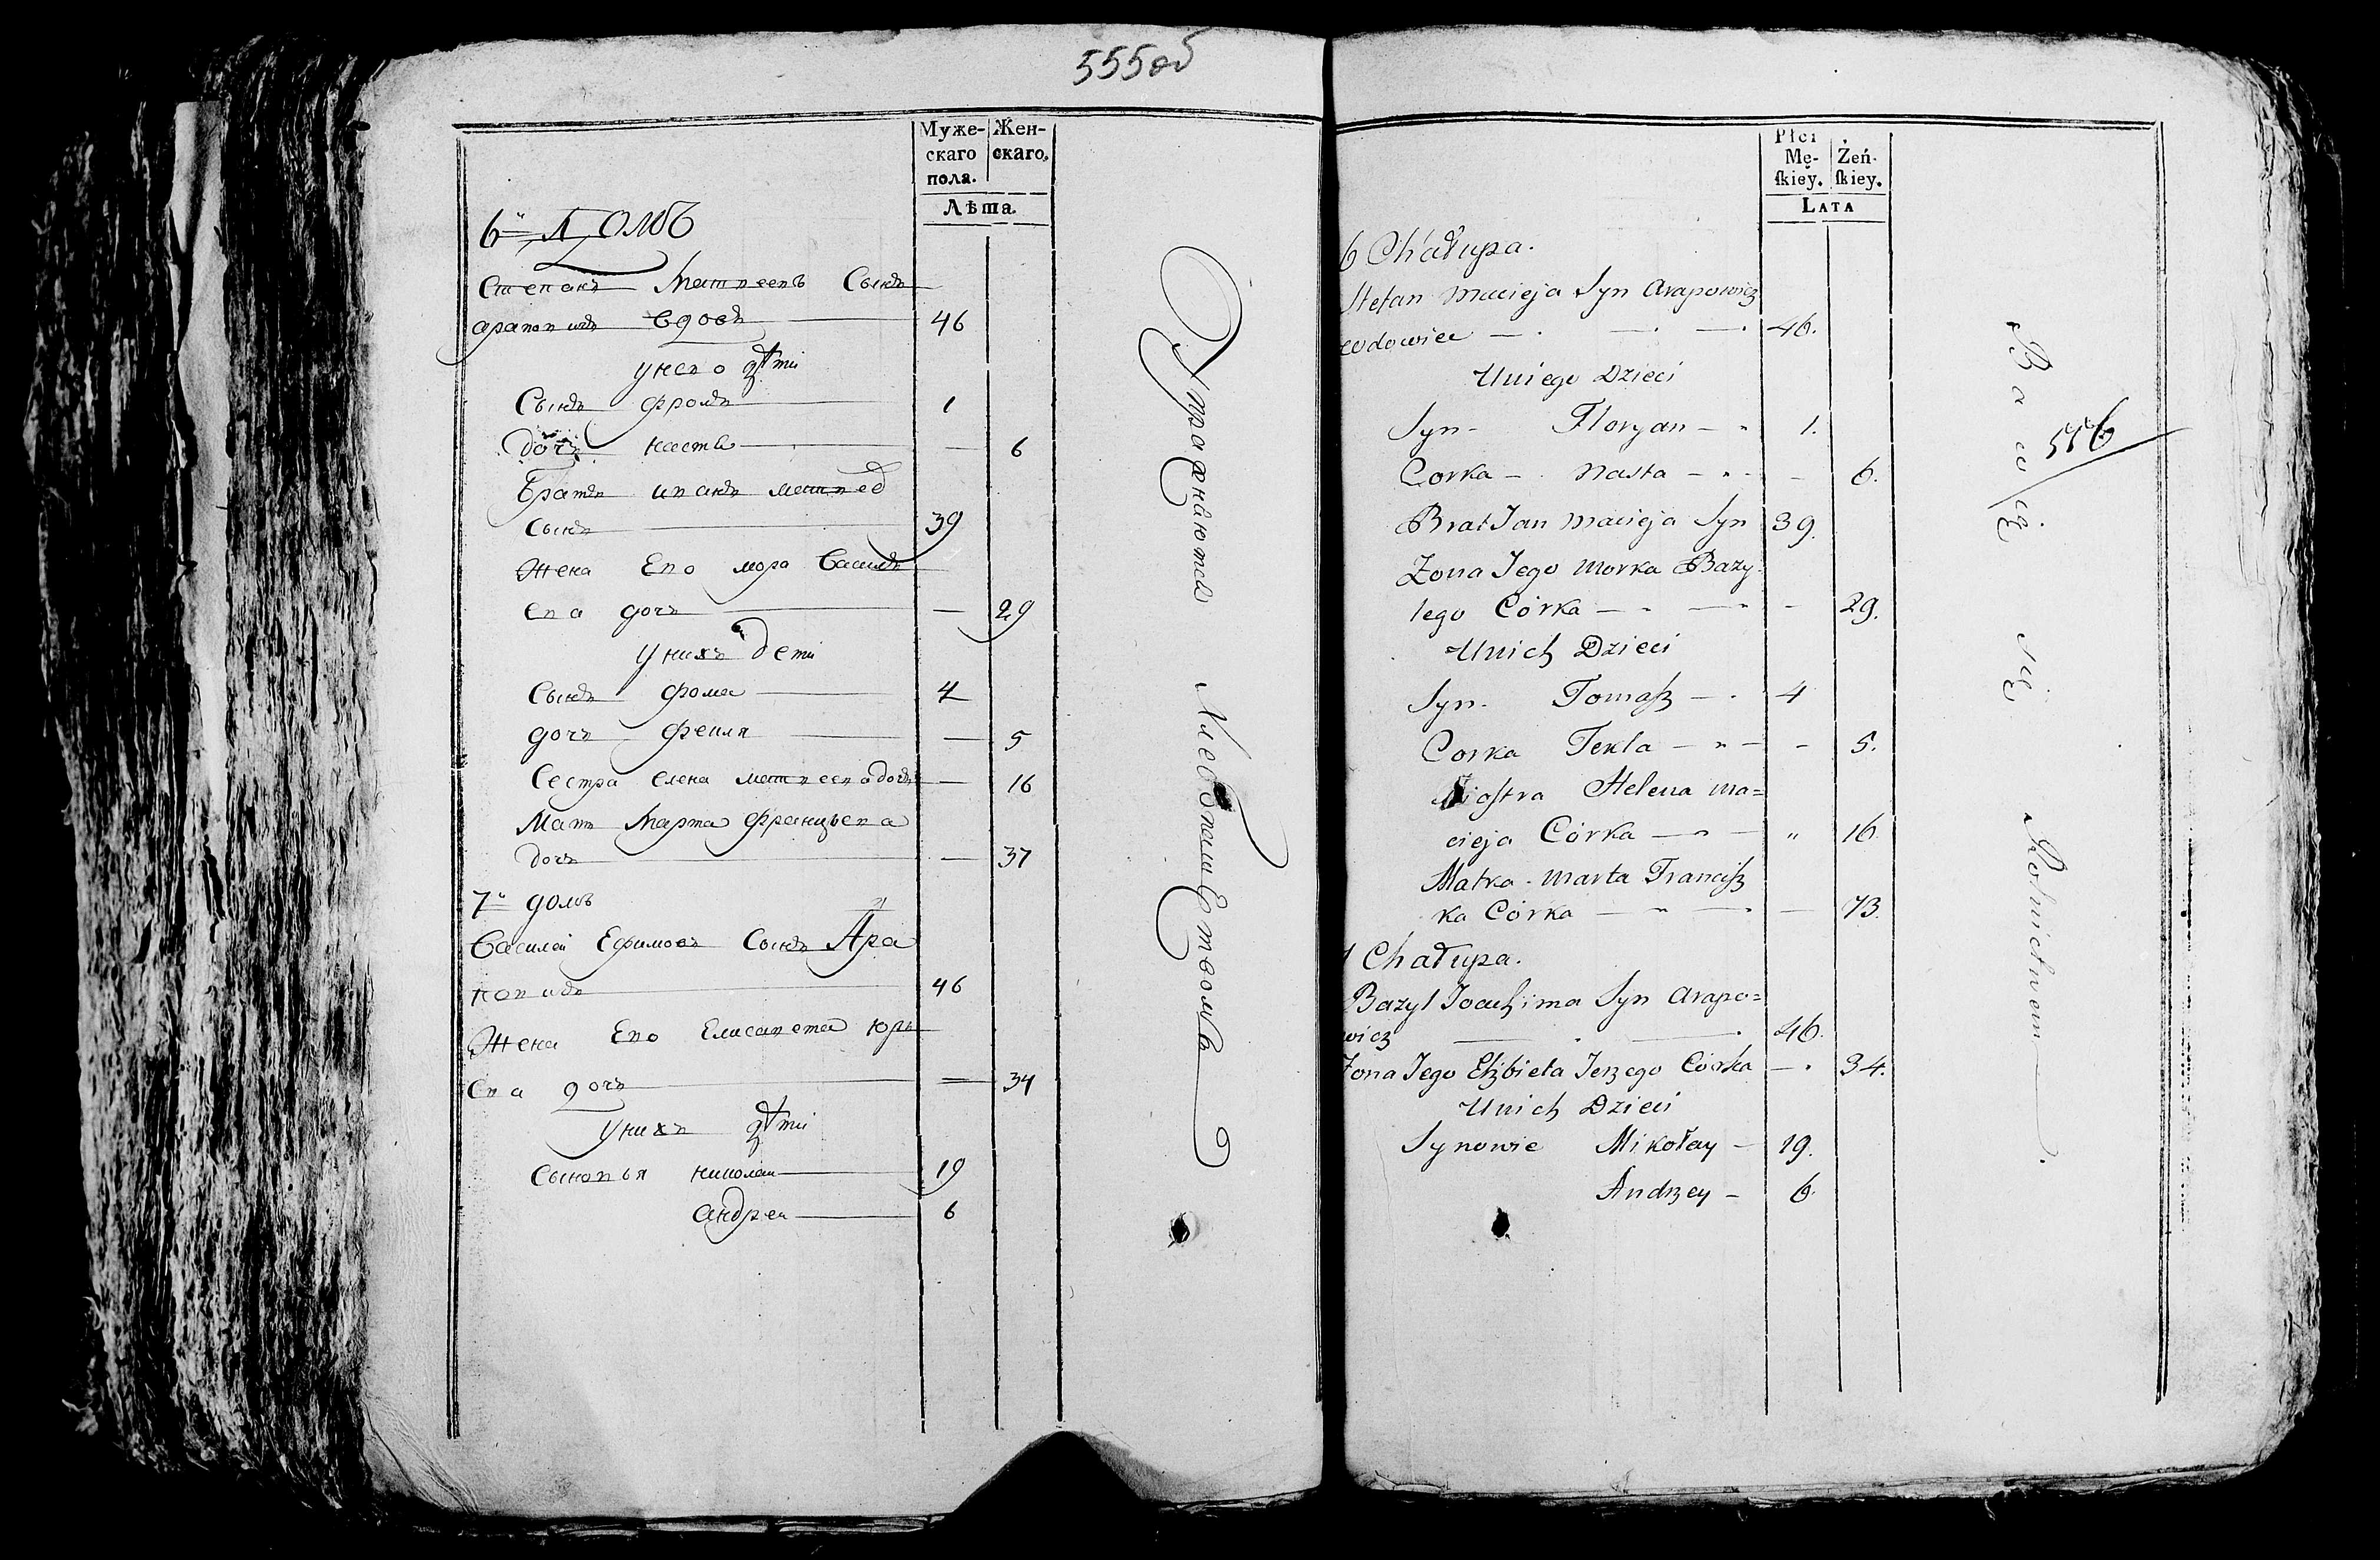 555об
Муже-
скаго
пола.
Жен-
скаго.
Лѣта.
6й Домъ
Степанъ Матвеевъ Сынъ
араповичъ вдовъ 46
у него дѣти
Сынъ фролъ 1
дочь наста — 6
Братъ иванъ матвеев
сынъ 39
Жена Его мора Васильъ
ева дочь — 29
у нихъ дети
Сынъ фома 4
дочь фекля — 5
Сестра елена матвеева дочь — 16
Мать Марта францева
дочь — 37
7й домъ
Василей Ефимовъ Сынъ Ара
повичъ 46
Жена Его Елисавета юрь
ева дочь — 34
у нихъ дѣти
Сыновья николаи 19
андреи 6
Упражняются Хлебопашествомъ
Płci
Mę-
skiey.
Żeń-
skiey.
LATA
6 Chałupa.
Stefan Macieja Syn Arapowicz
wdowiec — 46.
U niego Dzieci
Syn - Floryan — 1.
Corka — Nasta — - 6.
Brat Jan Macieja Syn 39.
Zona Jego Morka Bazy
lego Córka — - 29.
U nich Dzieci
Syn. Tomasz — 4
Corka Tekla — - 5.
Siostra Helena Ma=
cieja Córka — „ 16.
Matka Marta Francisz
ka Córka — — 73.
7 Chałupa.
Bazyl Joachima Syn Arapo=
wicz — 46.
Zona Jego Elżbieta Jerzego Córka — 34.
U nich Dzieci
Synowie Mikołay — 19.
Andrzey — 6.
Bawią się Rolnictwem
556